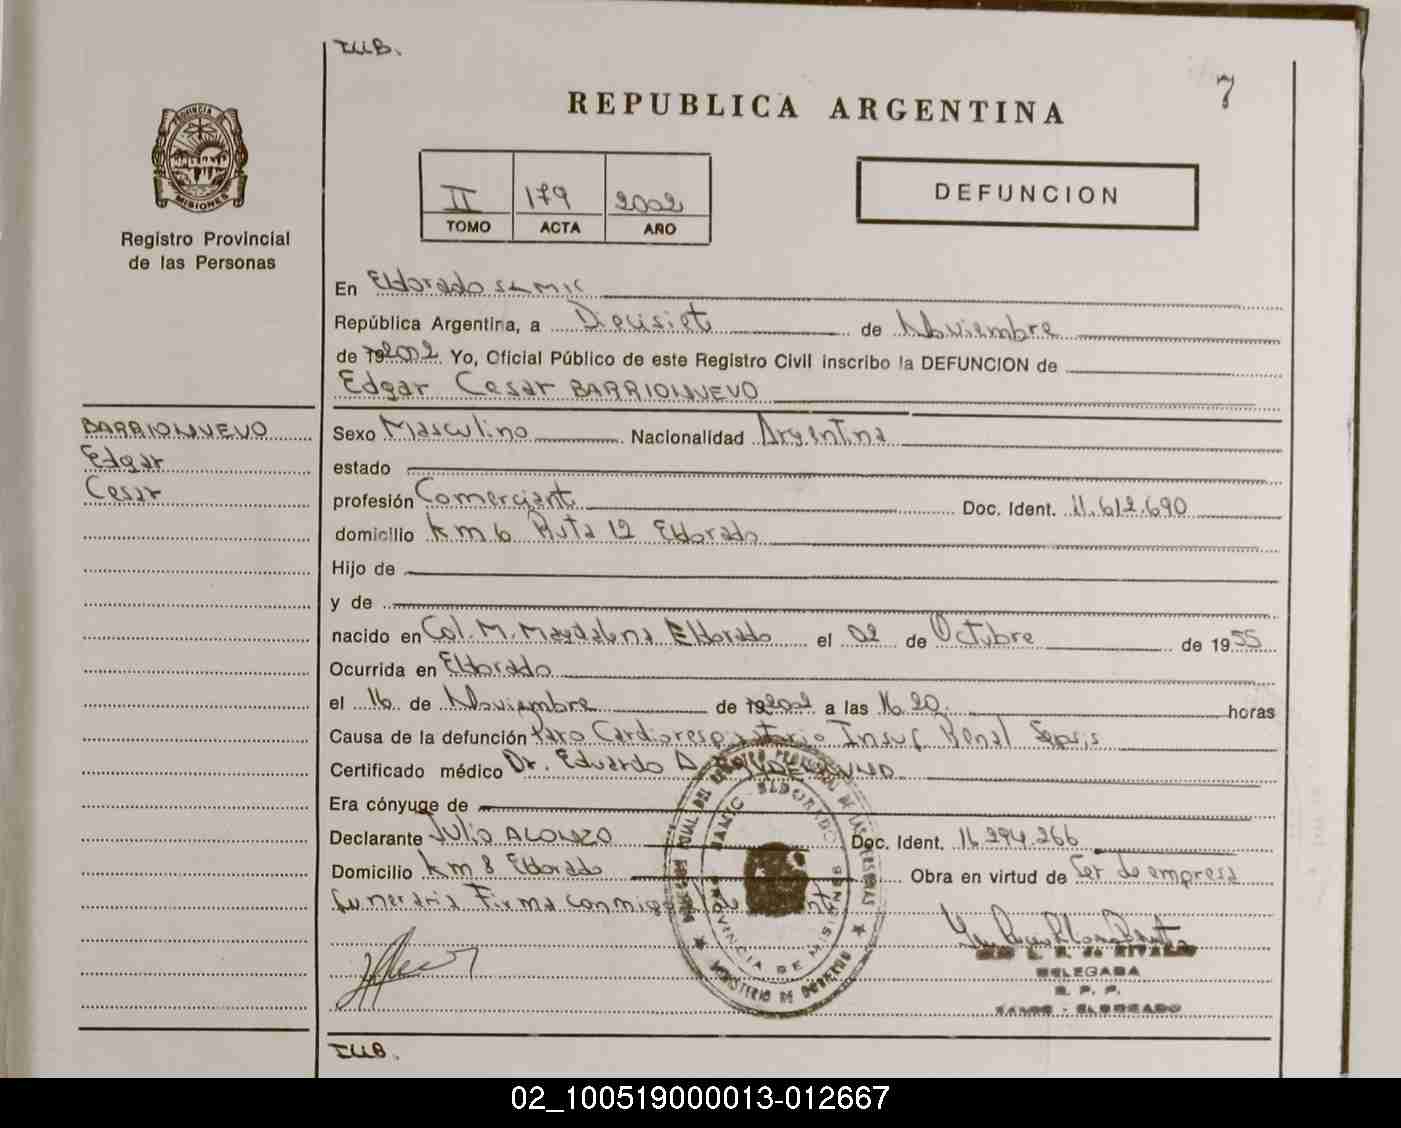 7
REPUBLICA ARGENTINA
PROVINCIA DE
MISIONES
Registro Provincial
de las Personas
II 179 2002
TOMO ACTA AÑO
DEFUNCION
En Eldorado SAMIC
República Argentina, a Diecisiete de Noviembre
de 192002 Yo, Oficial Público de este Registro Civil inscribo la DEFUNCION de
Edgar Cesar BARRIONUEVO
BARRIONUEVO
Edgar
Cesar
Sexo Masculino Nacionalidad Argentina
estado
profesión Comerciante Doc. Ident. 11.612.690
domicilio Km 6 Ruta 12 Eldorado
Hijo de
y de
nacido en Col. M. Magdalena Eldorado el 02 de Octubre de 1955
Ocurrida en Eldorado
el 16 de Noviembre de 192002 a las 16 20 horas
Causa de la defunción Paro Cardiorespiratorio Insuf Renal Sepsis
Certificado médico Dr. Eduardo A.
Era cónyuge de
Declarante Julio ALONZO Doc. Ident. 16.294.266
Domicilio Km 8 Eldorado Obra en virtud de Ser de empresa
funeraria Firma conmigo
SAMIC - ELDORADO
PROVINCIA DE MISIONES
MINISTERIO DE GOBIERNO
L. R. de RIVALDO
DELEGADA
R. P. P.
SAMIC - ELDORADO
02_100519000013-012667